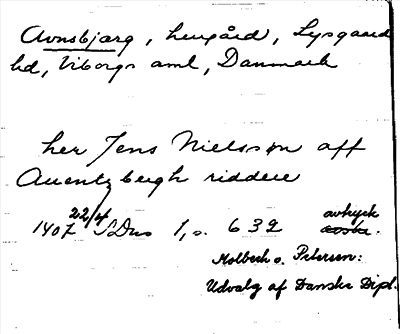 Avnsbjærg, herrgård, Lysgaard
hd, Viborgs amt, Danmark
her Jens Nielssøn aff
Auentzbergh riddere
1407 22/4 SDns 1, s. 639 avtryck
Molbech o. Petersen:
Udvalg af Danske Dipl.